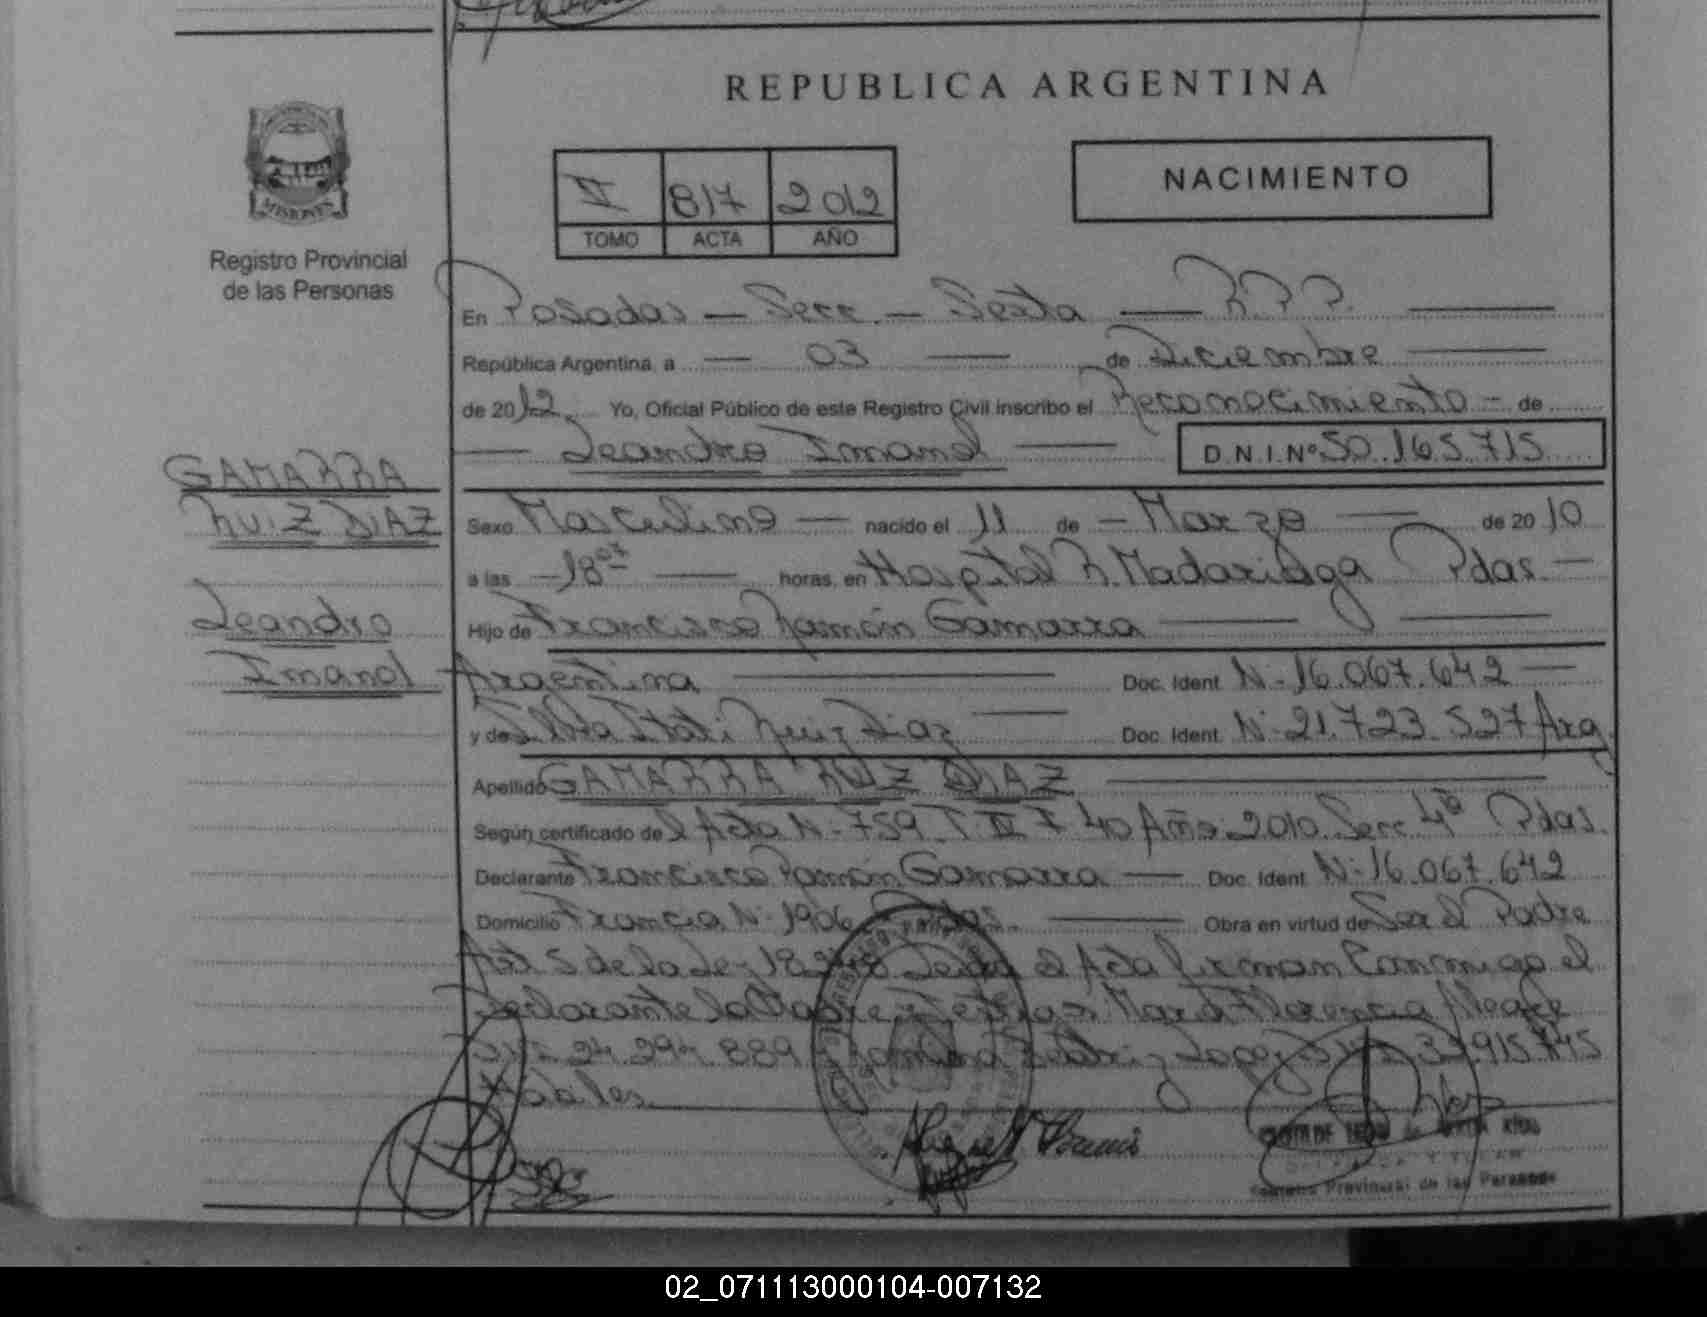 REPUBLICA ARGENTINA
MISIONES
Registro Provincial
de las Personas
817 2012
TOMO ACTA AÑO
NACIMIENTO
En Posadas — Secc. — Sexta — R.P.P. —
República Argentina, a — 03 — de Diciembre —
de 2012 Yo, Oficial Público de este Registro Civil inscribo el Reconocimiento - de
— Leandro Imanol — D.N.I.Nº 50.165.715
GAMARRA
RUIZ DIAZ
Leandro
Imanol
Sexo Masculino — nacido el 11 de — Marzo — de 2010
a las — 18 — horas, en Hospital R. Madariaga Pdas. —
Hijo de Francisco Ramón Gamarra —
Argentina — Doc. Ident. Nº 16.067.642 —
y de Itati Ruiz Diaz — Doc. Ident. Nº 21.723.527 Arg
Apellido GAMARRA RUIZ DIAZ —
Según certificado de el Acta Nº 759 T. III F 40 Año: 2010. Secc. 4ta Pdas.
Declarante Francisco Ramón Gamarra — Doc. Ident. Nº 16.067.642
Domicilio Francia Nº 1906 Pdas. — Obra en virtud de Ser el Padre
Art. 5 de la Ley 18.248 Leida el Acta firman Conmigo el
Declarante la Madre y Testigos: Florencia
24.294.889 Romina Beatriz
Hábiles
Provincial de las Personas
02_071113000104-007132